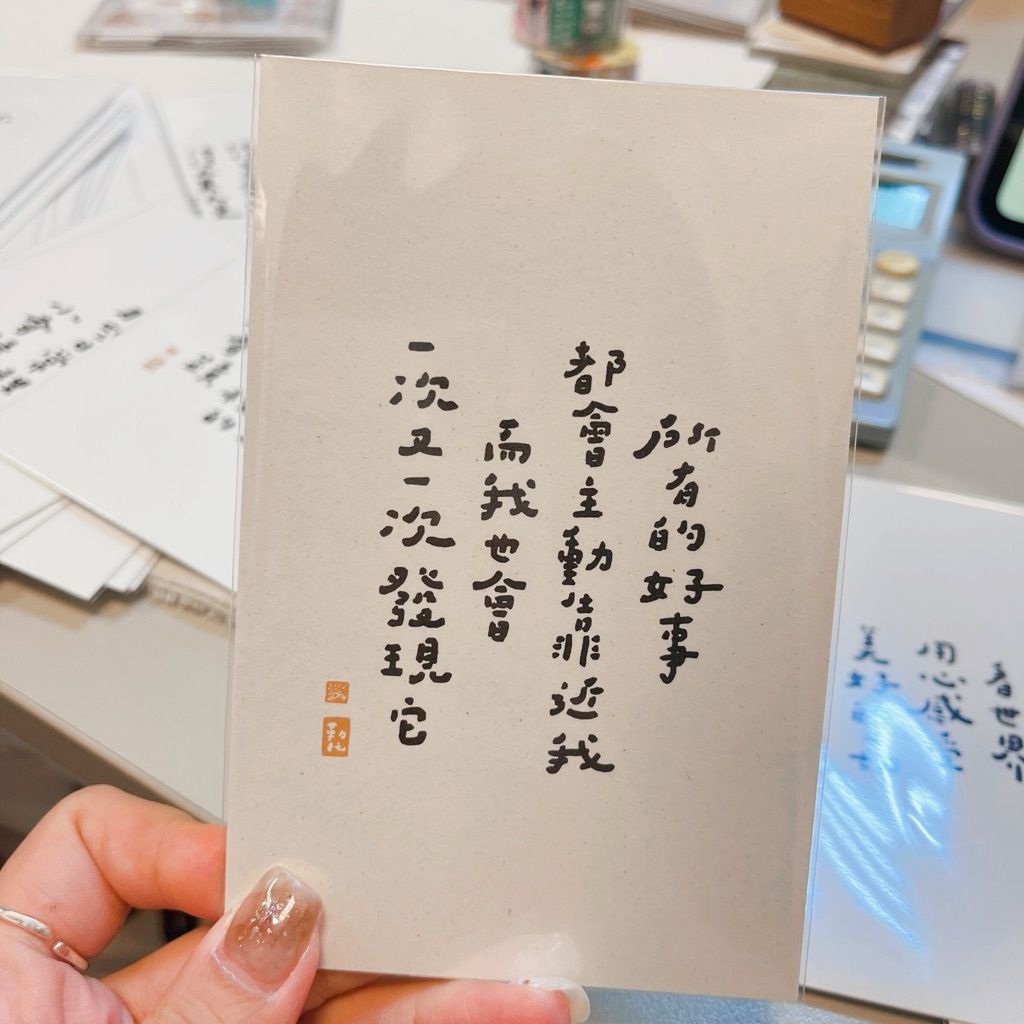 所有的好事
都會主動靠近我
而我也會
一次又一次發現它
看世界
用心感受
美好